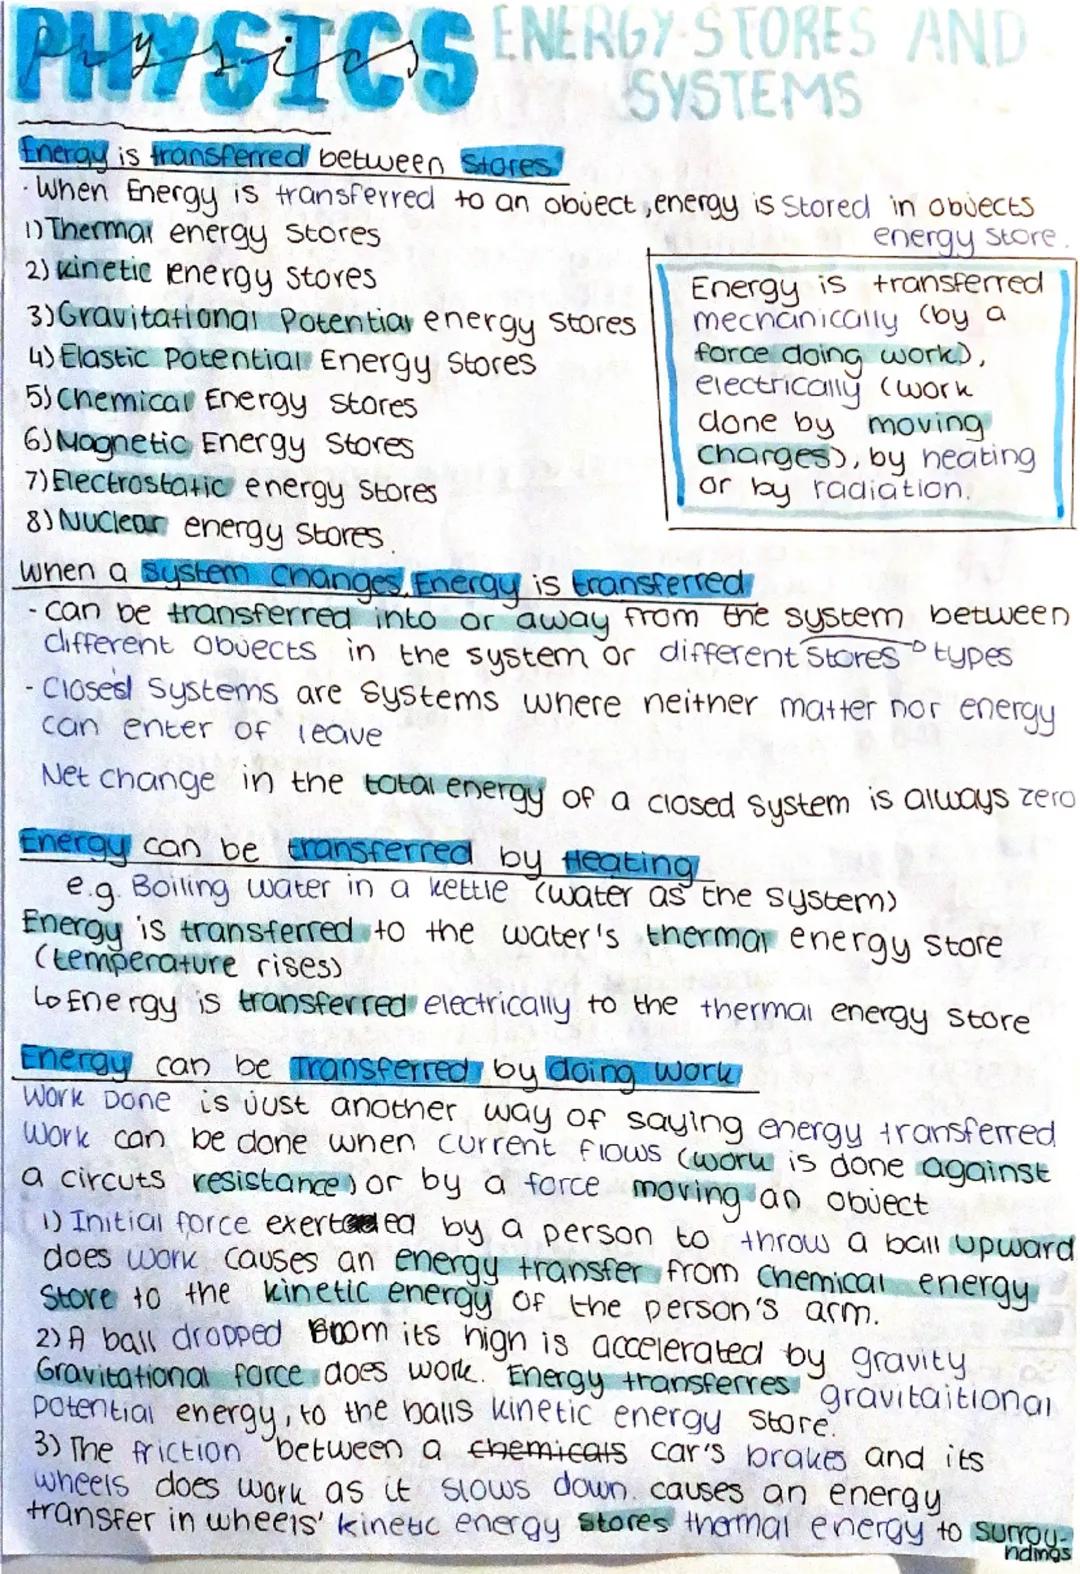 PHYSICS
physics
ENERGY STORES AND
SYSTEMS
Energy is transferred between stores
· When Energy is transferred to an object, energy is stored in objects
energy store.
1) Thermal energy stores
2) kinetic energy stores
3) Gravitational Potential energy stores
4) Elastic Potential Energy stores
5) Chemical Energy stores
6) Magnetic Energy Stores
7) Electrostatic energy stores
8) Nuclear energy stores.
Energy is transferred
mechanically (by a
force doing work),
electrically (work
done by moving
charges), by heating
or by radiation.
When a system changes, Energy is transferred
- can be transferred into or away from the system between
different objects in the system or different stores types
- Closed Systems are systems where neither matter nor energy
can enter of leave
Net change in the total energy of a closed system is always zero
Energy can be transferred by Heating
e.g. Boiling water in a kettle (water as the system)
Energy is transferred to the water's thermal energy store
(temperature rises)
↳ Energy is transferred electrically to the thermal energy store
Energy can be Transferred by doing work
Work Done is just another way of saying energy transferred
Work can be done when current flows (work is done against
a circuts resistance) or by a force moving an object
1) Initial force exerted by a person to throw a ball upward
does work causes an energy transfer from chemical energy
store to the kinetic energy of the person's arm.
2) A ball dropped from its high is accelerated by gravity
Gravitational force does work. Energy transferres gravitaitional
potential energy, to the balls kinetic energy store.
3) The friction between a chemicals car's brakes and its
wheels does work as it slows down. causes an energy
transfer in wheels' kinetic energy stores thermal energy to surrou-
ndings